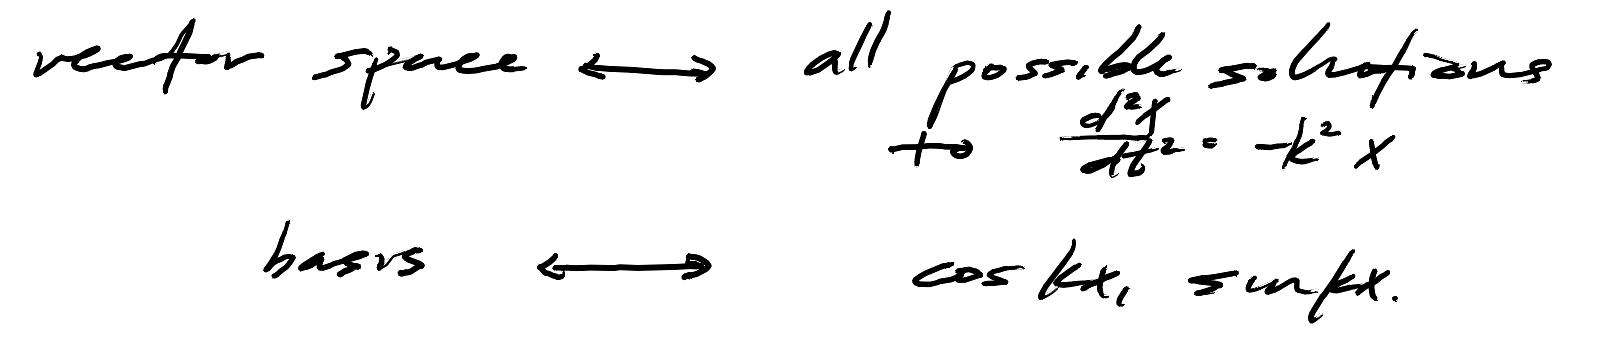 vector space ⟷ all possible solutions
to d²x/dt² = -k² x
basis ⟷ cos kx, sin kx.